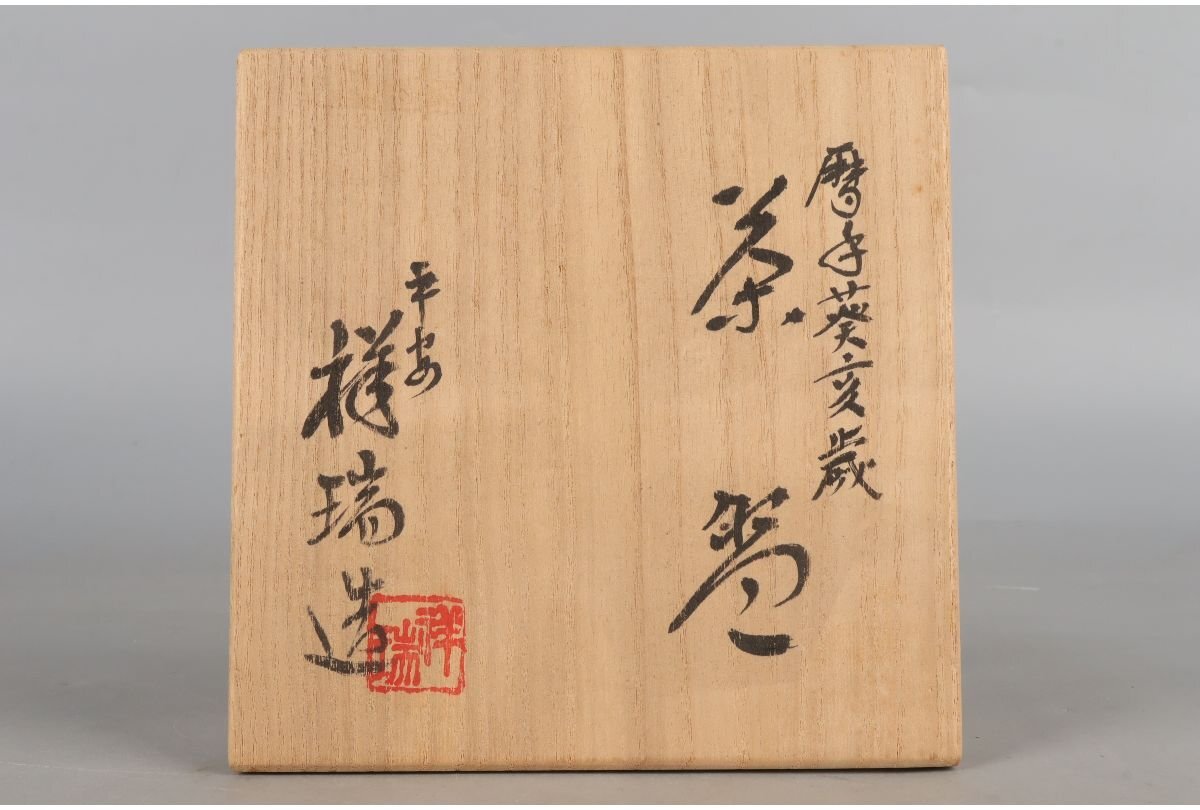 暦手葵亥歳
茶盌
平安
祥瑞造
祥瑞